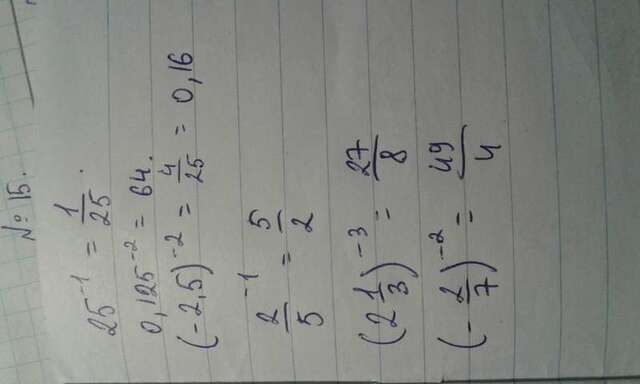 № 15.
25⁻¹ = 1/25.
0,125⁻² = 64.
(-2,5)⁻² = 4/25 = 0,16
2/5⁻¹ = 5/2
(2 1/3)⁻³ = 27/8
(-2/7)⁻² = 49/4